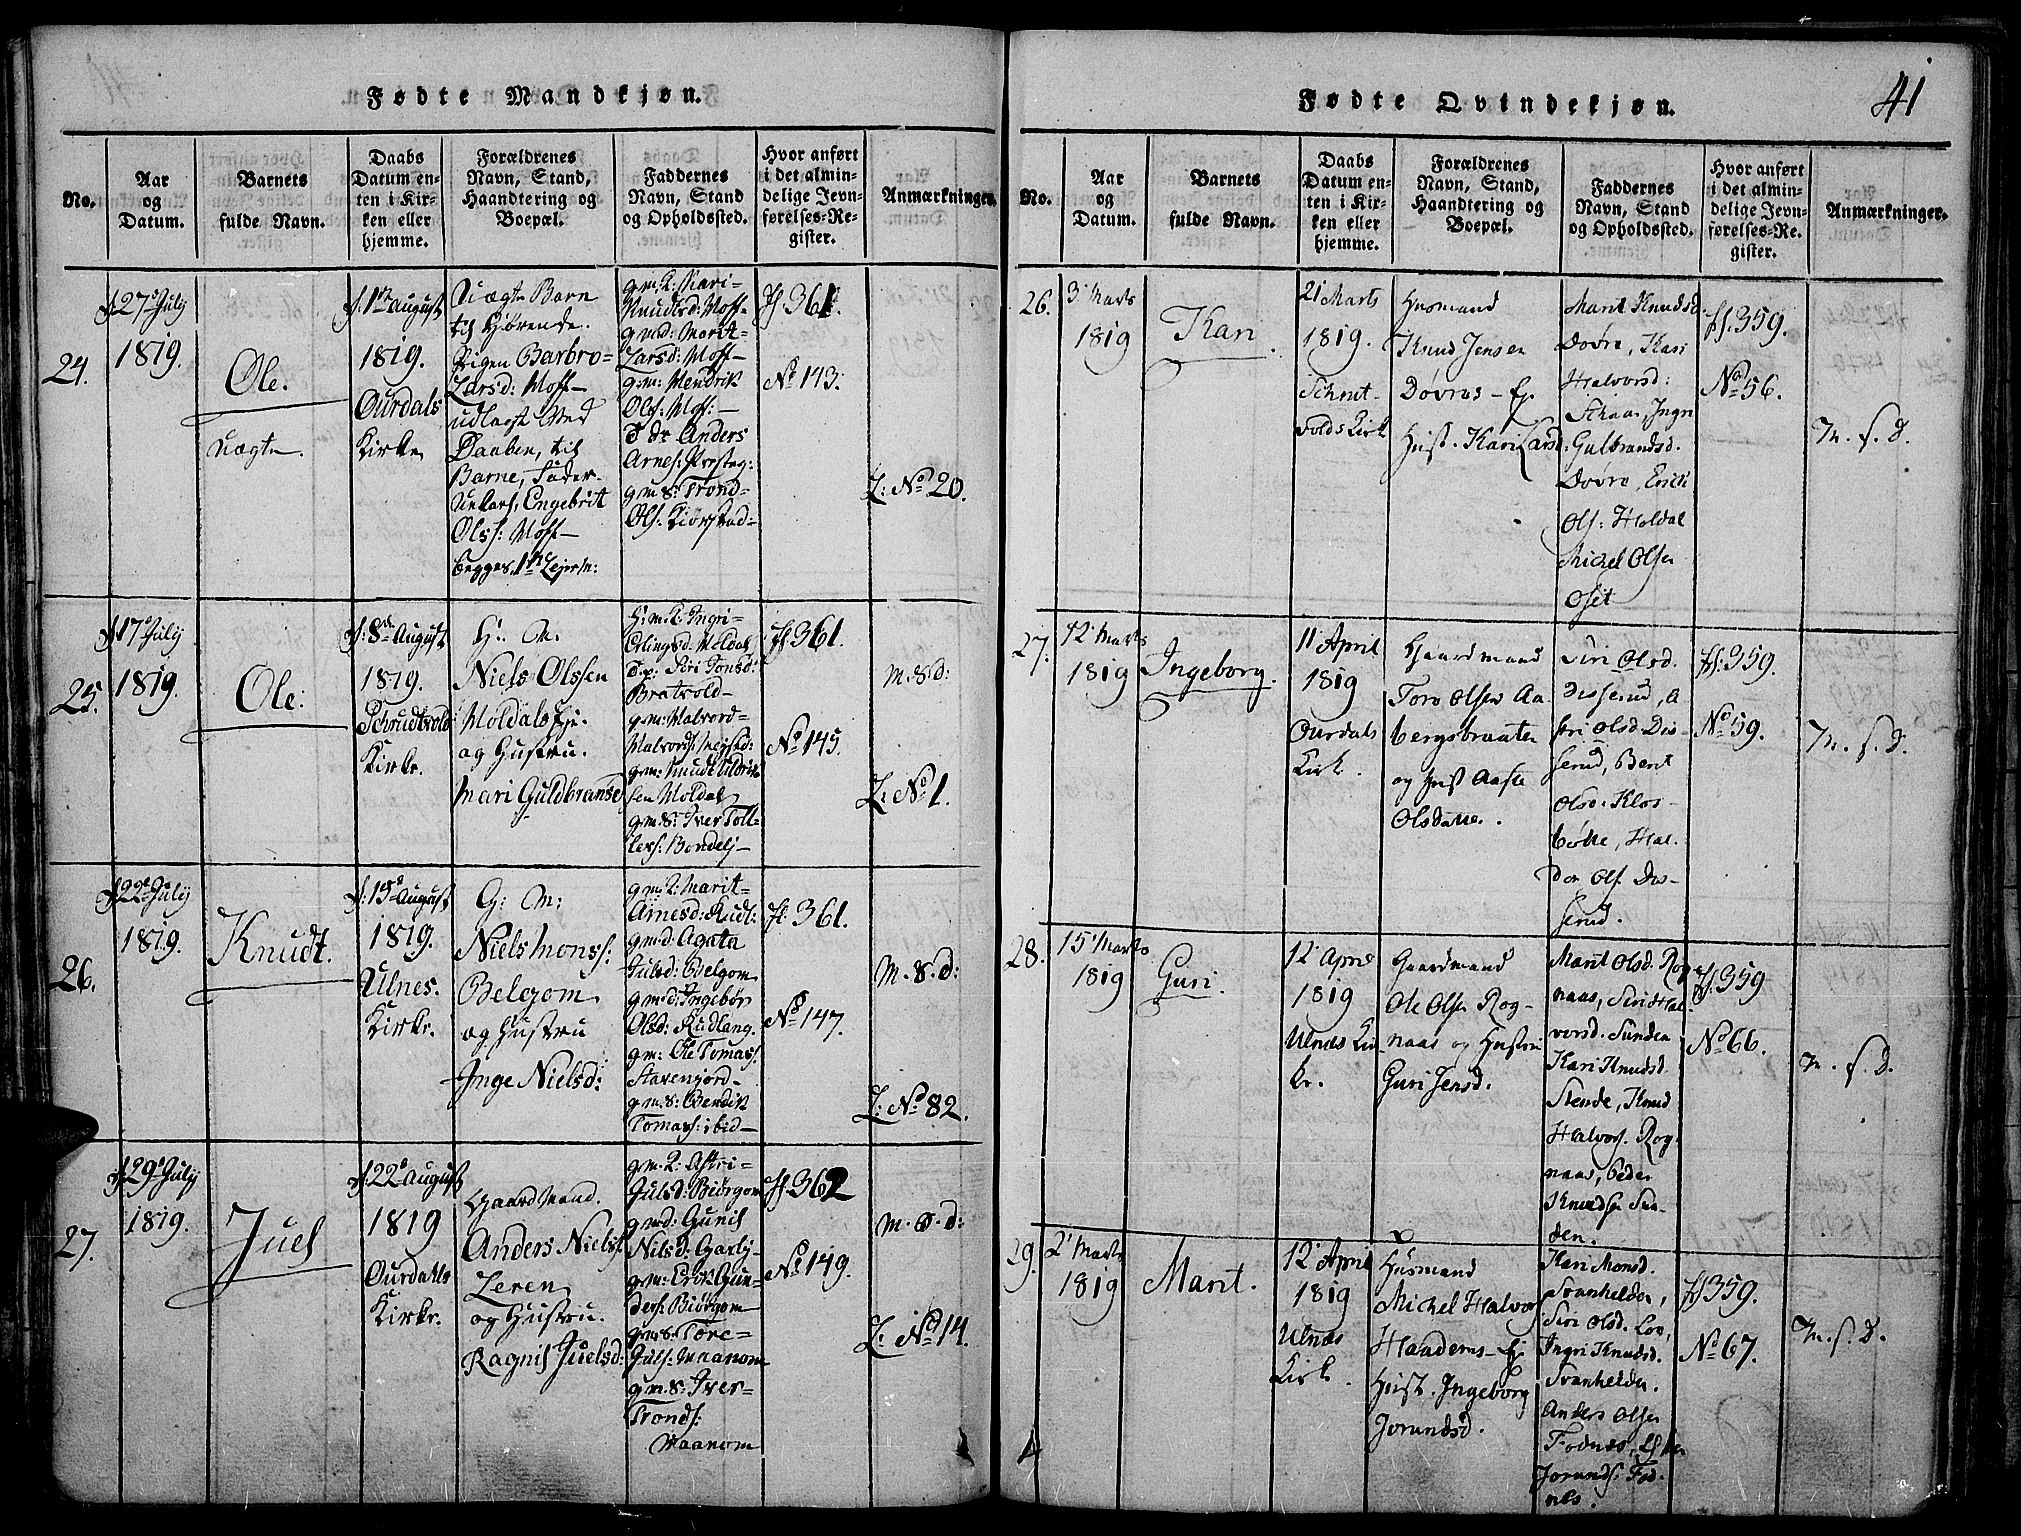 41
Fødte Mandkjøn.
No.
Aar
og
Datum.
Barnets
fulde Navn.
Daabs
Datum en-
ten i Kir-
ken eller
hjemme.
Forældrenes
Navn, Stand,
Haandtering og
Boepæl.
Faddernes
Navn, Stand
og Opholdssted.
Hvor anført
i det almin-
delige Jevn-
førelses-Re-
gister.
Anmærkninger.
24.
27 July
1819.
Ole.
uægte.
1ste August
1819.
Ourdals
Kirke
Uægte Barn
til Hjørende.
Pigen Barbro
Larsd: Moff
udlagt Ved
Daaben, til
Barne, Fader
Unkarl, Engebrit
Olss: Moff
begges 1te Lejerm:
g m K: Kari
Knudtsd: Moff
g m d: Marit
Larsd: Moff
g m: Hendrik
Ols: Moff:
T dr Anders
Arnes: Presteg:
g m S: Trond
Ols: Kiørstad
Jf. 361.
No 143.
L: No 20.
25.
17 July
1819.
Ole:
8de August
1819.
Schrudtvold
Kirke.
G: M:
Niels Olssen
Moldals Ej.
og Hustru.
Mari Guldbransd
G: m: K: Ingri
Erlingsd: Moldal
T. p: Siri Tonsd:
Bratvold
g m: Halvord
Halvords:
g m: Knudt Endrik
sen Moldal
g m S: Iver Toll
lefs: Bondelj
Jf 361.
No 145.
M. S. d:
L: No 1.
26.
22 July
1819.
Knudt.
15 August
1819.
Ulnes.
Kirke.
G: M:
Niels Mons:
Belgom
og Hustru
Inge Nielsd:
g m K: Marit
Arnesd: Kudl:
g m d: Agata
Julsd: Belgom
g m d: Ingebør
Olsd: Kudlang.
g m: Ole Tomass:
Stavenjord
g m S: Bendik
Tomass: ibid
Jf: 361.
No 147.
M. S. d:
L: No 82.
27.
29 July
1819.
Juel
22 August
1819
Ourdals
Kirke.
Gaard Mand.
Anders Niels:
Leren
og Hustru.
Ragnil Juelsd:
g m K: Astri
Julsd: Biørgom
g m d: Gunil
Nilsd: Garlj
g m: Erik Gun-
ders: Biørgom
g m S: Tore
Juls: Maanom
g m S: Iver
Tronds:
Maanom
Jf. 362
No 149.
M. S. d:
L: No 14.
Fødte Qvindekjøn.
No.
Aar
og
Datum.
Barnets
fulde Navn.
Daabs
Datum en-
ten i Kir-
ken eller
hjemme.
Forældrenes
Navn, Stand,
Haandtering og
Boepæl.
Faddernes
Navn, Stand
og Opholdssted.
Hvor anført
i det almin-
delige Jevn-
førelses-Re-
gister.
Anmærkninger.
26.
3 Marts
1819
Kari
21 Marts
1819.
Schrut-
volds Kirk
Husmand
Knud Jensen
Døvras - Ej.
Hust. Kari Larsd.
Marit Knudsd.
Døvre, Kari
Halvorsd:
Skaar, Ingri
Gulbrandsd.
Døvre, Erick
Ols: Holdal
Michel Olsen
Oset
Jf. 359.
No 56.
M. f. D.
27.
12 Marts
1819
Ingeborg.
11 April
1819
Ourdals
Kirk.
Gaardmand
Tore Olsen Aa
bergsbraaten
og Hust Aaste
Olsdatter.
Siri Olsd.
Disserud, A
stri Olsd: Dis-
serud, Berit
Olsd: Klos-
bøtte, Hal-
dor Ols. Dis-
serud.
Jf: 359.
No 59.
M. f. D.
28.
15 Marts
1819
Guri.
12 April
1819
Ulnæs Kir
ke.
Gaardmand
Ole Olsen Rog-
naas og Hustru
Guri Jensd.
Marit Olsd. Rog
naas, Siri Hal
vorsd. Sunden
Kari Knudsd.
Stende, Knud
Halvors. Rog-
naas, Peder
Knudsen Sun-
den.
Jf: 359
No 66.
M. f. D.
29.
2 Marts
1819
Marit.
12 April
1819
Ulnæs
Kirke.
Husmand
Michel Halvors
Haadems - Ej
Hust. Ingeborg
Jorundsd.
Kari Monsd.
Svanhelden,
Siri Olsd. Loe,
Ingri Knudsd.
Svanhelden.
Anders Olsen
Fodnes,
Jorunds: Fod-
nes.
Jf 359.
No 67.
M. f. D.